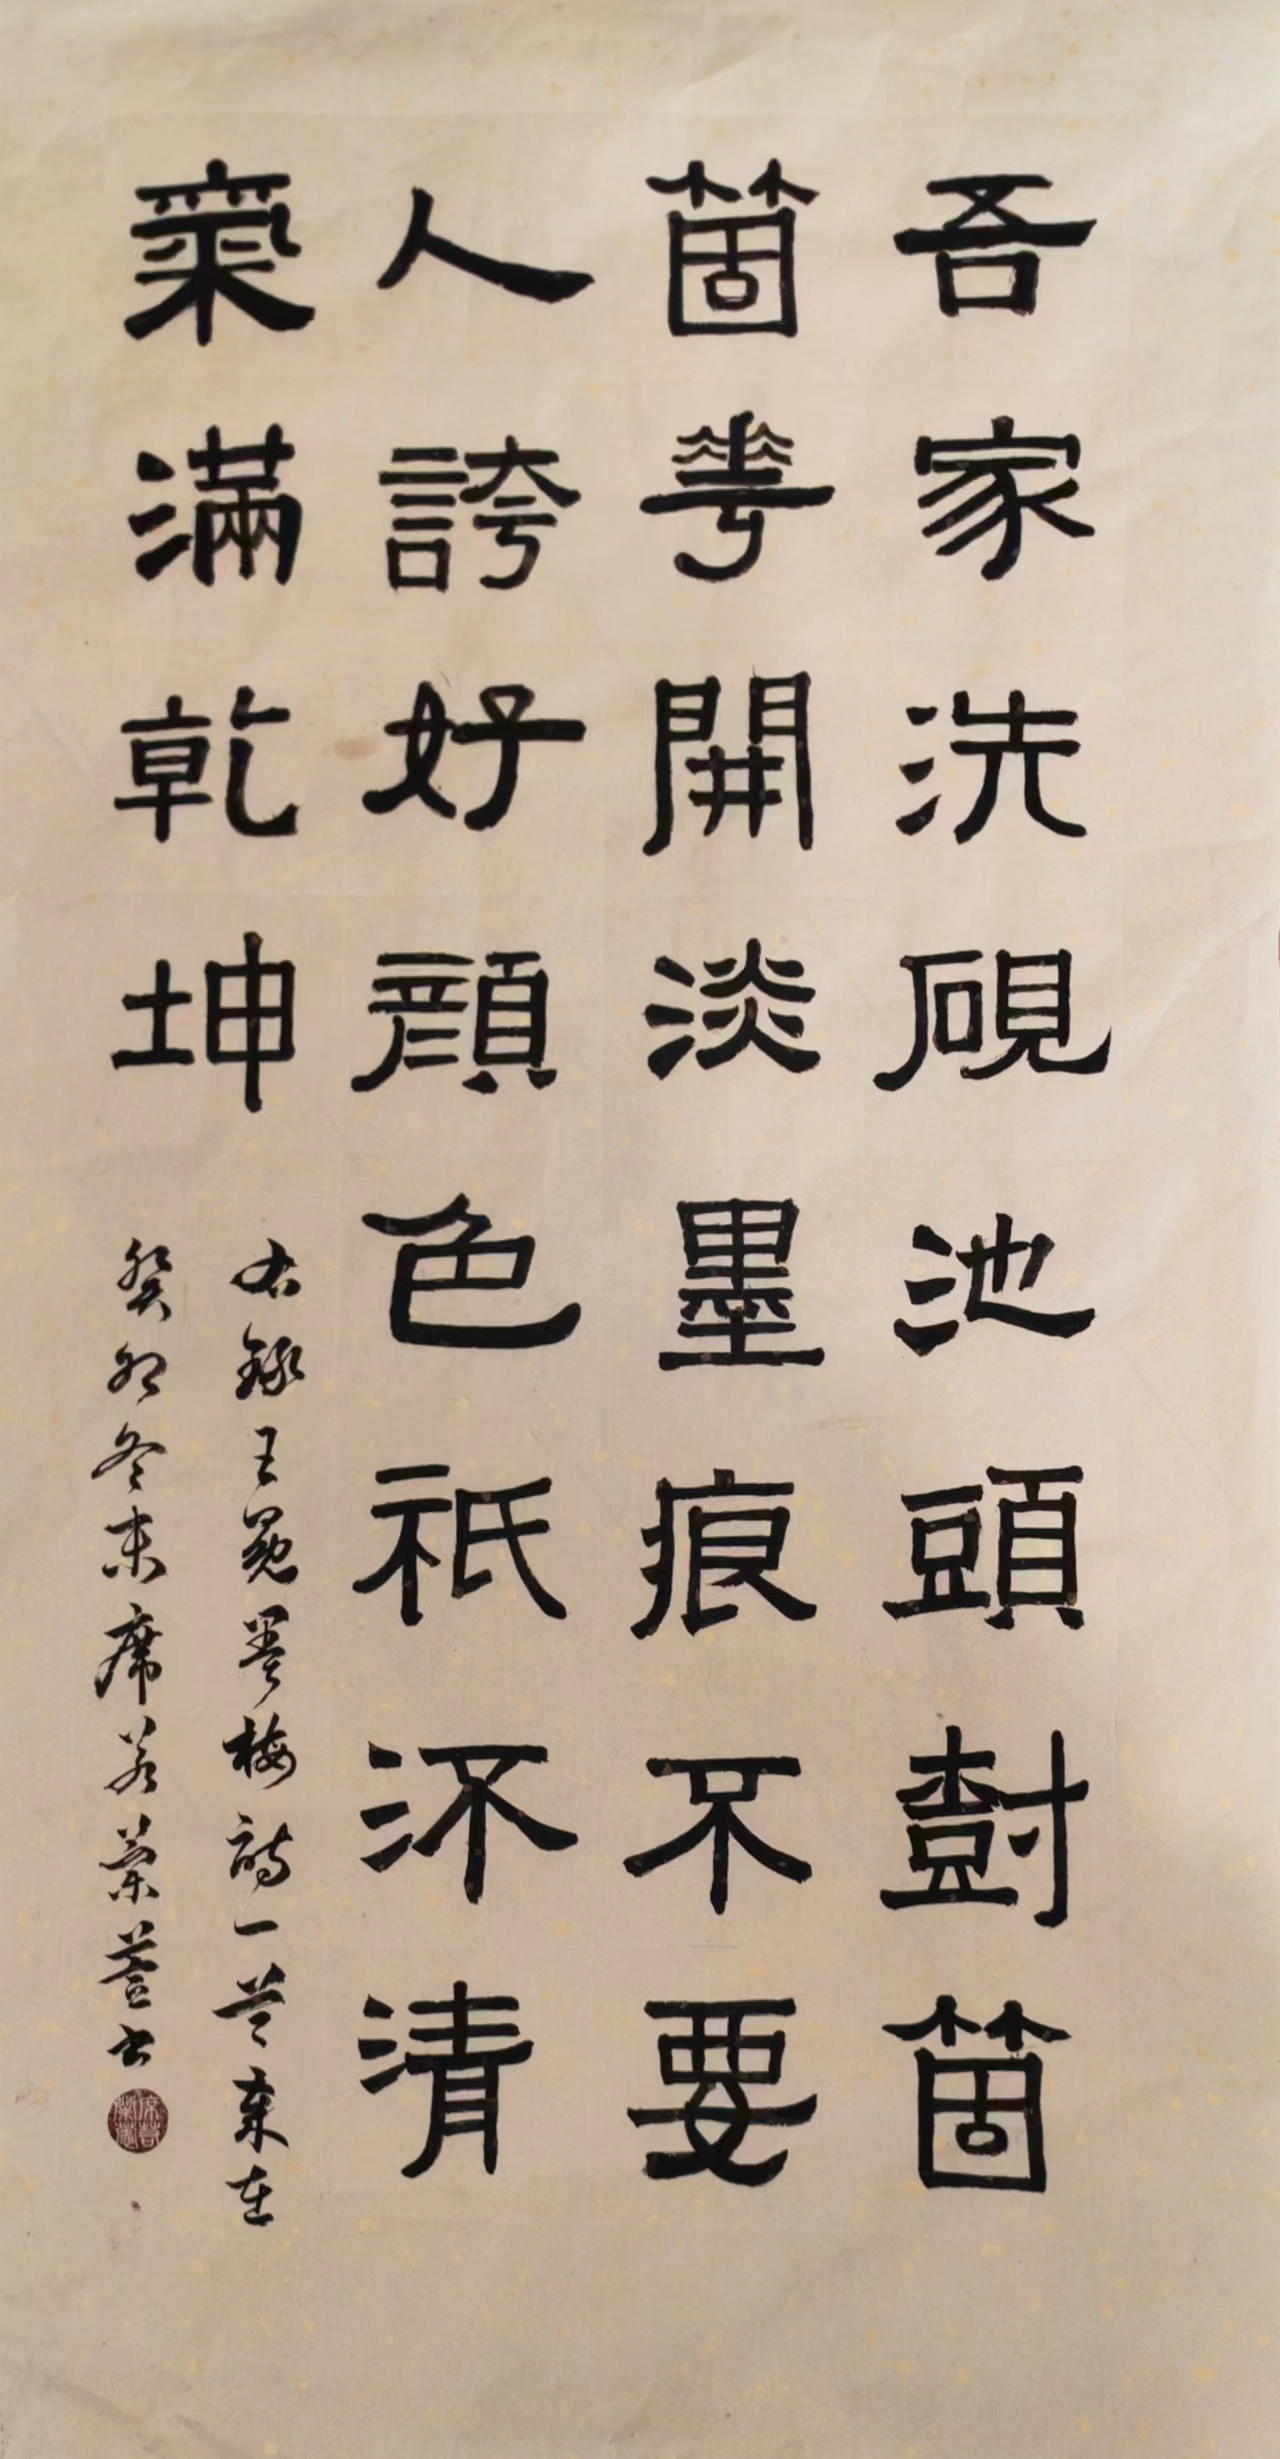 吾家洗硯池頭樹箇
箇華開淡墨痕不要
人誇好顏色祇㳅清
氣滿乾坤
右錄王冕墨梅詩一首歲在
癸卯冬末席若蘭萱书